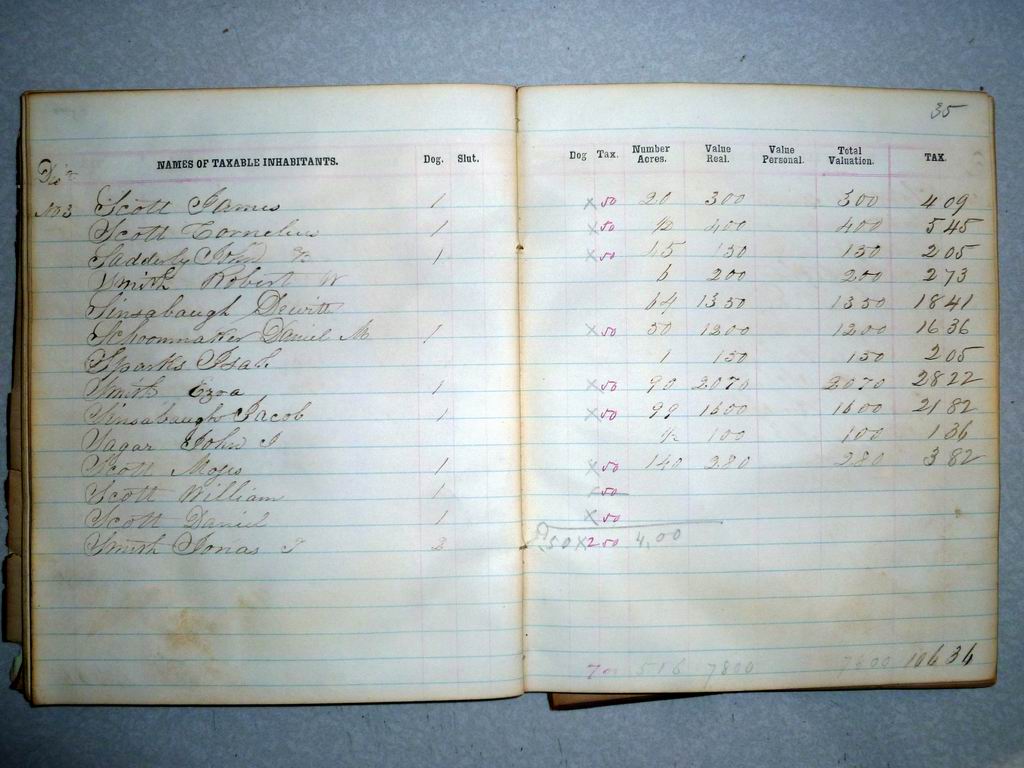 35
NAMES OF TAXABLE INHABITANTS. Dog. Slut. Dog Tax. Number Acres. Value Real. Value Personal. Total Valuation. TAX.
No 3 Scott James 1 x 50 20 300 300 4 09
Scott Cornelius 1 x 50 400 400 5 45
Sadderly John 1 x 50 45 150 150 2 05
Smith Robert W 6 200 200 2 73
Sinsabaugh Dewitt 64 1350 1350 18 41
Schoonmaker Daniel M 1 x 50 50 1200 1200 16 36
Sparks Isah 1 150 150 2 05
Smith Ezra 1 x 50 90 2070 2070 28 22
Sinsabaugh Jacob 1 x 50 99 1600 1600 21 82
Sagar John I 1/2 100 100 1 36
Scott Moses 1 x 50 140 280 280 3 82
Scott William 1 50
Scott Daniel 1 x 50
Smith Jonas I x 2 50 4,00
516 7800 106 36